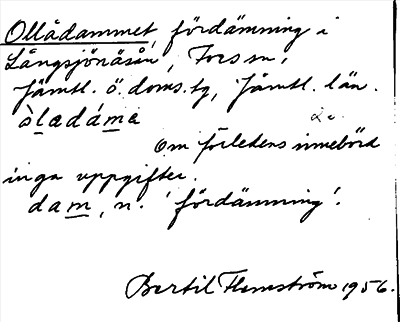 Ollådammet, fördämning i
Långsjönäsån, Fors sn,
Jämtl. ö. doms.tg, Jämtl. län.
òladámə
Om förledens innebörd
inga uppgifter.
dam, n. 'fördämning'.
Bertil Flemström 1956.